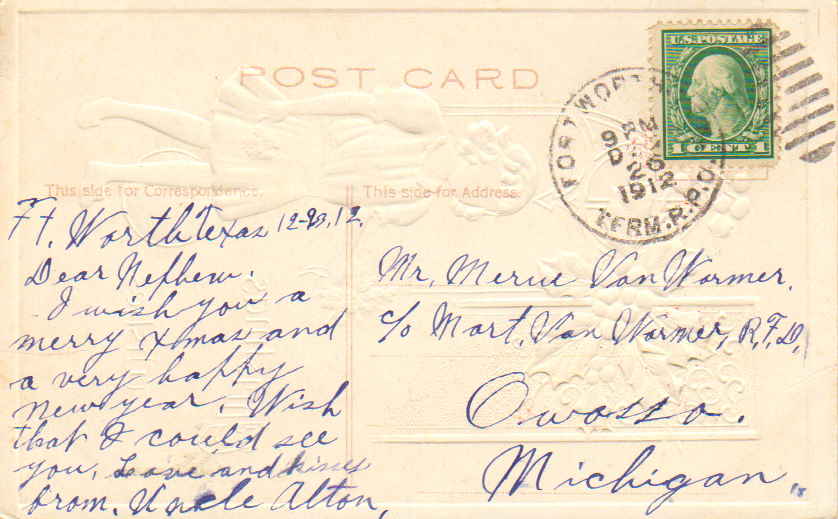 POST CARD
U.S. POSTAGE
1 CENT 1
FORT WORTH
PM
9
D 20
1912
TERM. R.P.O.
This side for Correspondence.
This side for Address.
Ft. Worth Texas 12-20,12.
Dear Nephew.
I wish you a
merry Xmas and
a very happy
New year. Wish
that I could see
you. Love and kisses
from. Uncle Alton,
Mr. Merve Van Wormer.
c/o Mort. Van Wormer, R,F,D,
Owosso.
Michigan